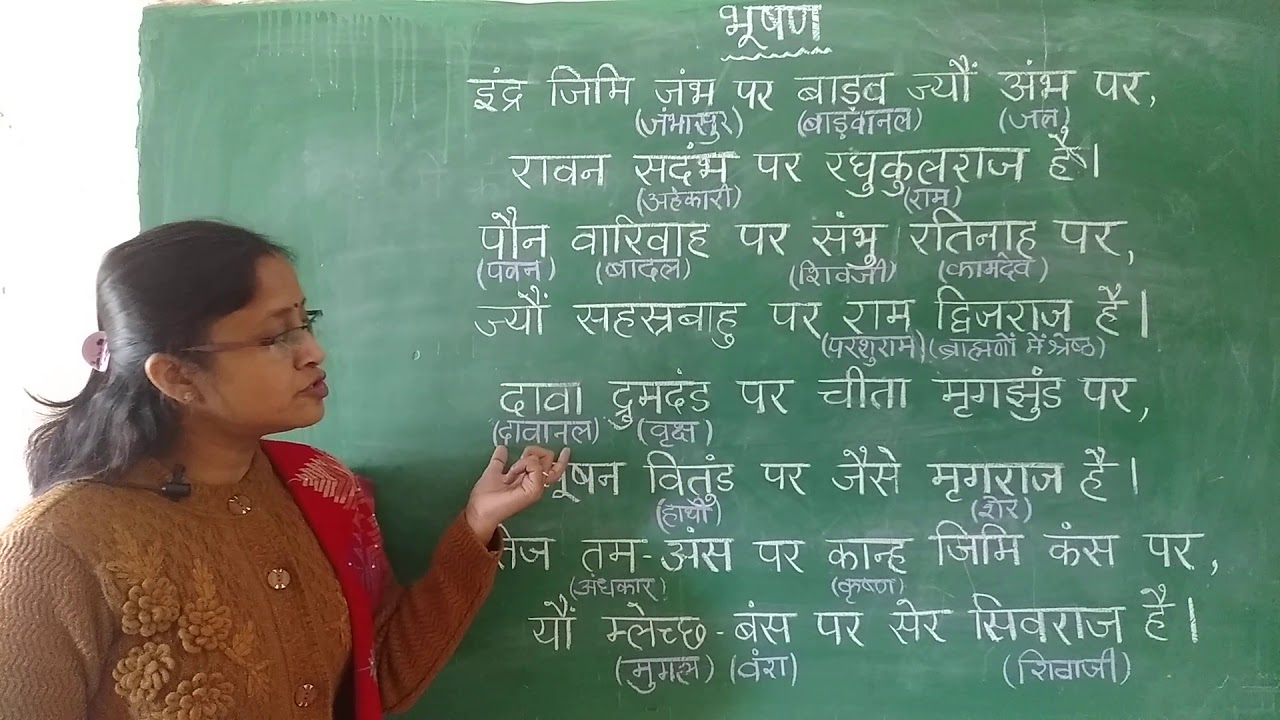 भूषण
इंद्र जिमि जंभ पर बाड़व ज्यौं अंभ पर,
(जंभासुर) (बाड़वानल) (जल)
रावन सदंभ पर रघुकुलराज है।
(अहंकारी) (राम)
पौन वारिवाह पर संभु रतिनाह पर,
(पवन) (बादल) (शिवजी) (कामदेव)
ज्यौं सहस्रबाहु पर राम द्विजराज है।
(परशुराम) (ब्राह्मणों में श्रेष्ठ)
दावा द्रुमदंड पर चीता मृगझुंड पर,
(दावानल) (वृक्ष)
भूषन वितुंड पर जैसे मृगराज है।
(हाथी) (शेर)
तेज तम-अंस पर कान्ह जिमि कंस पर,
(अंधकार) (कृष्ण)
यौं म्लेच्छ-बंस पर सेर सिवराज है।
(मुगल) (वंश) (शिवाजी)